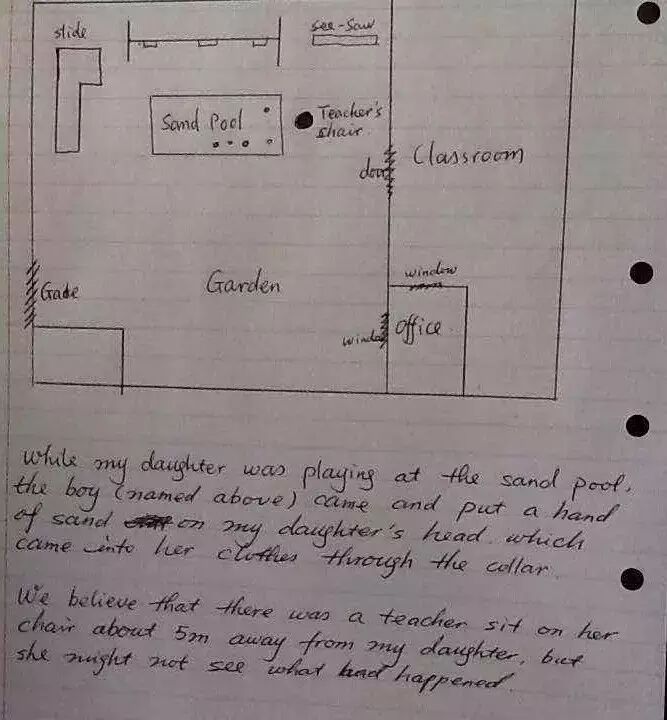 slide
see-saw
Sand Pool
Teacher's
chair
door
Classroom
window
Gate
Garden
window
office
While my daughter was playing at the sand pool,
the boy (named above) came and put a hand
of sand on my daughter's head which
came into her clothes through the collar.
We believe that there was a teacher sit on her
chair about 5m away from my daughter, but
she might not see what had happened.